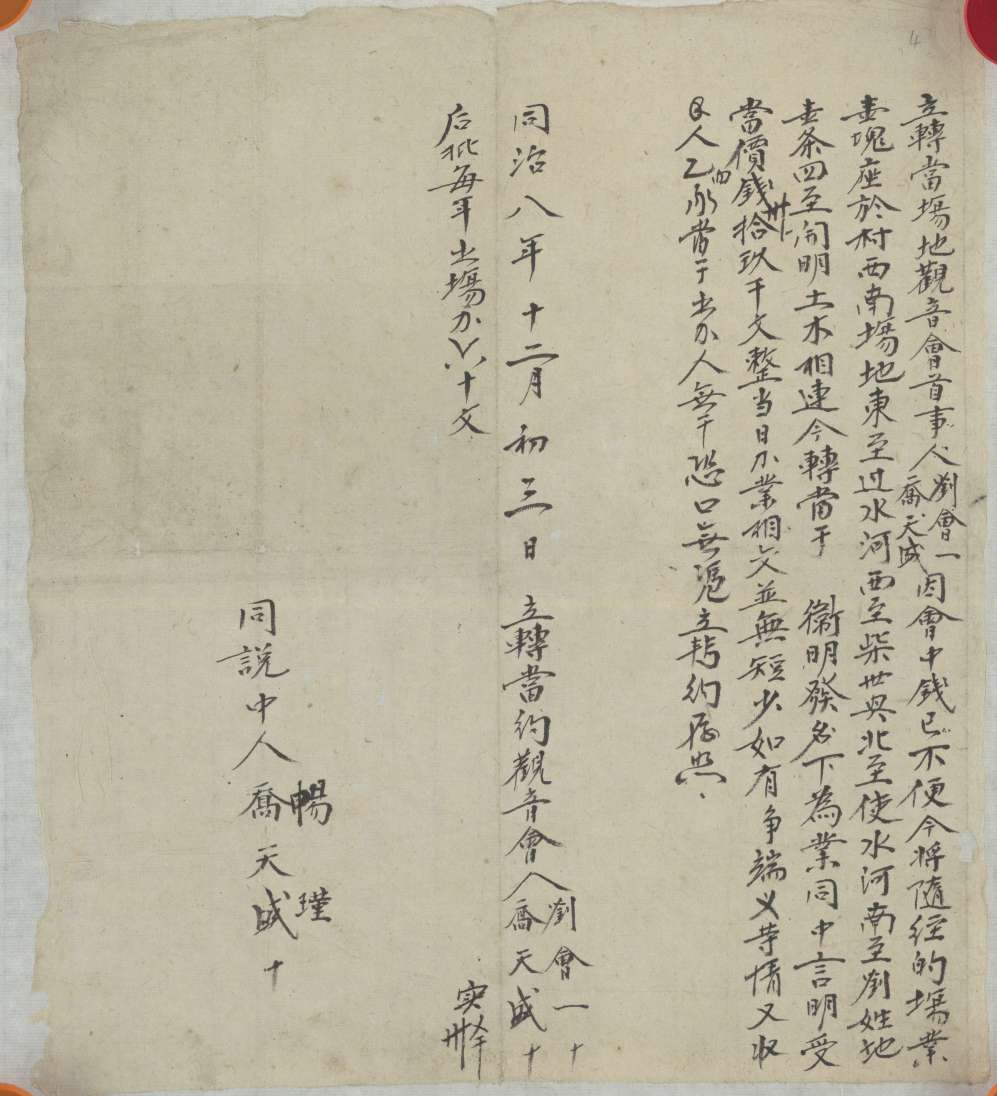 立轉當塲地觀音會首事人劉會一喬天成因會中錢已不便今將隨經的塲業
壹塊座於村西南塲地東至过水河西至柴世興北至使水河南至劉姓地
壹条四至開明土木相連今轉當于 衛明發名下為業同中言明受
當價錢拾玖千文整当日錢業相交並無短少如有争端 等情又収
人 承當于出錢人無干恐口無憑立轉約存照
同治八年十二月初三日 立轉當約觀音會人劉會一十 喬天成十
后批每年出塲錢六十文
同說中人暢瑾 喬天成十
实
4